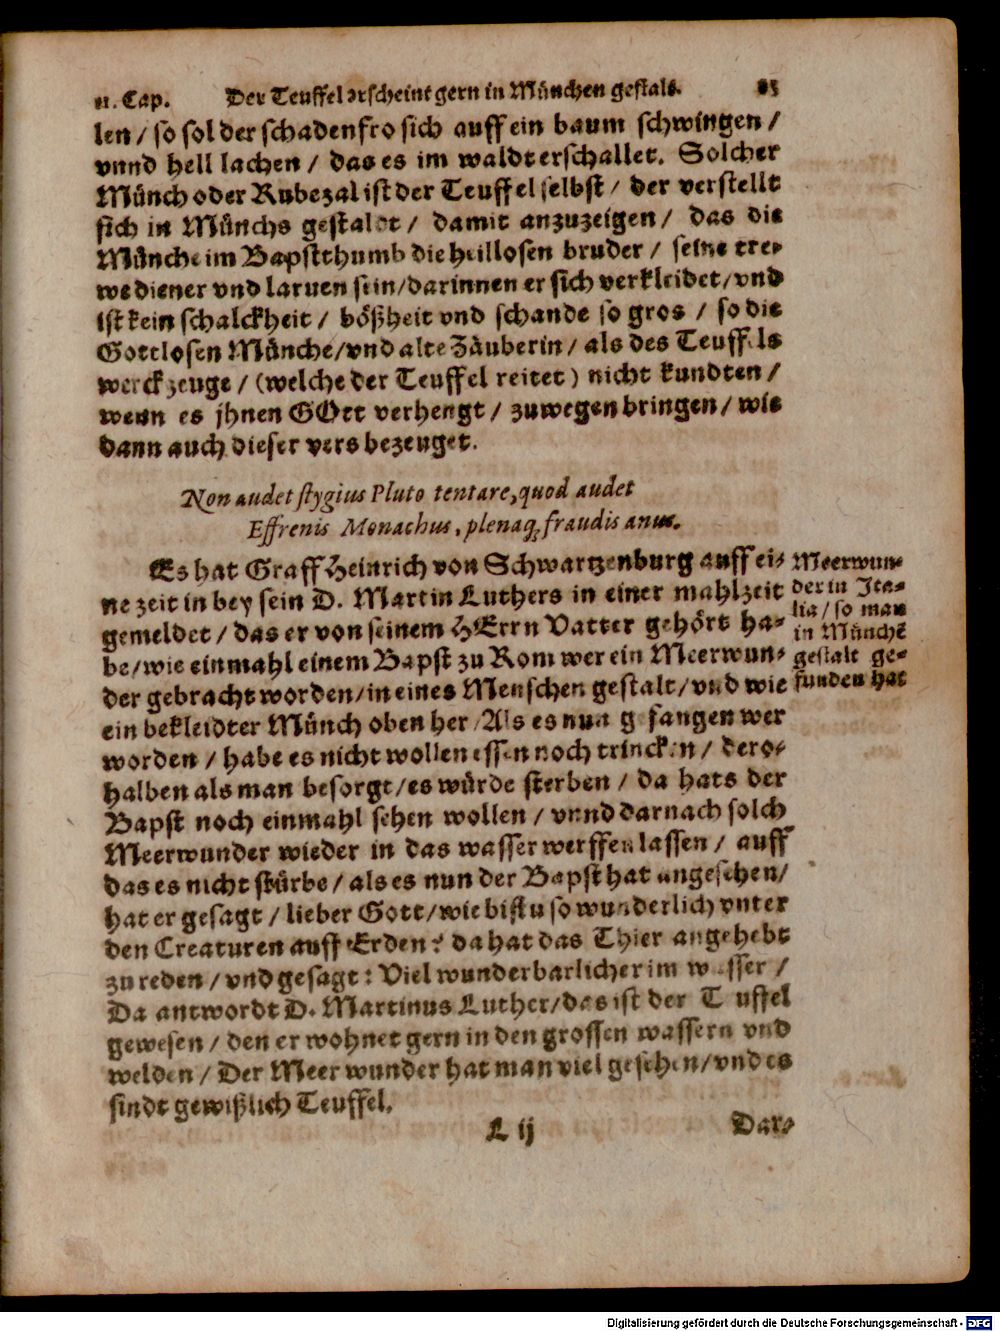 11. Cap. Der Teuffel erscheint gern in München gestalt. 85
len / so sol der schadenfro sich auff ein baum schwingen /
vnnd hell lachen / das es im waldt erschallet. Solcher
Münch oder Rubezal ist der Teuffel selbst / der verstellt
sich in Münchs gestaldt / damit anzuzeigen / das die
Münche im Bapstthumb die heillosen bruder / seine tre-
we diener vnd laruen sein / darinnen er sich verkleidet / vnd
ist kein schalckheit / bößheit vnd schande so gros / so die
Gottlosen Münche / vnd alte Zäuberin / als des Teuffels
werckzeuge / (welche der Teuffel reitet) nicht kundten /
wenn es jhnen GOtt verhengt / zuwegen bringen / wie
dann auch dieser vers bezeuget.
Non audet stygius Pluto tentare, quod audet
Effrenis Monachus, plenaq; fraudis anus.
Es hat Graff Heinrich von Schwartzenburg auff ei-
ne zeit in bey sein D. Martin Luthers in einer mahlzeit
gemeldet / das er von seinem HErrn Vatter gehört ha-
be / wie einmahl einem Bapst zu Rom wer ein Meerwun-
der gebracht worden / in eines Menschen gestalt / vnd wie
ein bekleidter Münch oben her / Als es nun gefangen wer
worden / habe es nicht wollen essen noch trincken / dero-
halben als man besorgt / es würde sterben / da hats der
Bapst noch einmahl sehen wollen / vnnd darnach solch
Meerwunder wieder in das wasser werffen lassen / auff
das es nicht stürbe / als es nun der Bapst hat angesehen /
hat er gesagt / lieber Gott / wie bistu so wunderlich vnter
den Creaturen auff Erden? da hat das Thier angehebt
zu reden / vnd gesagt: Viel wunderbarlicher im wasser /
Da antwordt D. Martinus Luther / das ist der Teuffel
gewesen / den er wohnet gern in den grossen wassern vnd
welden / Der Meerwunder hat man viel gesehen / vnd es
sindt gewißlich Teuffel.
Meerwun-
der in Ita-
lia / so man
in Münchē
gestalt ge-
funden hat
L ij Dar-
Digitalisierung gefördert durch die Deutsche Forschungsgemeinschaft - DFG